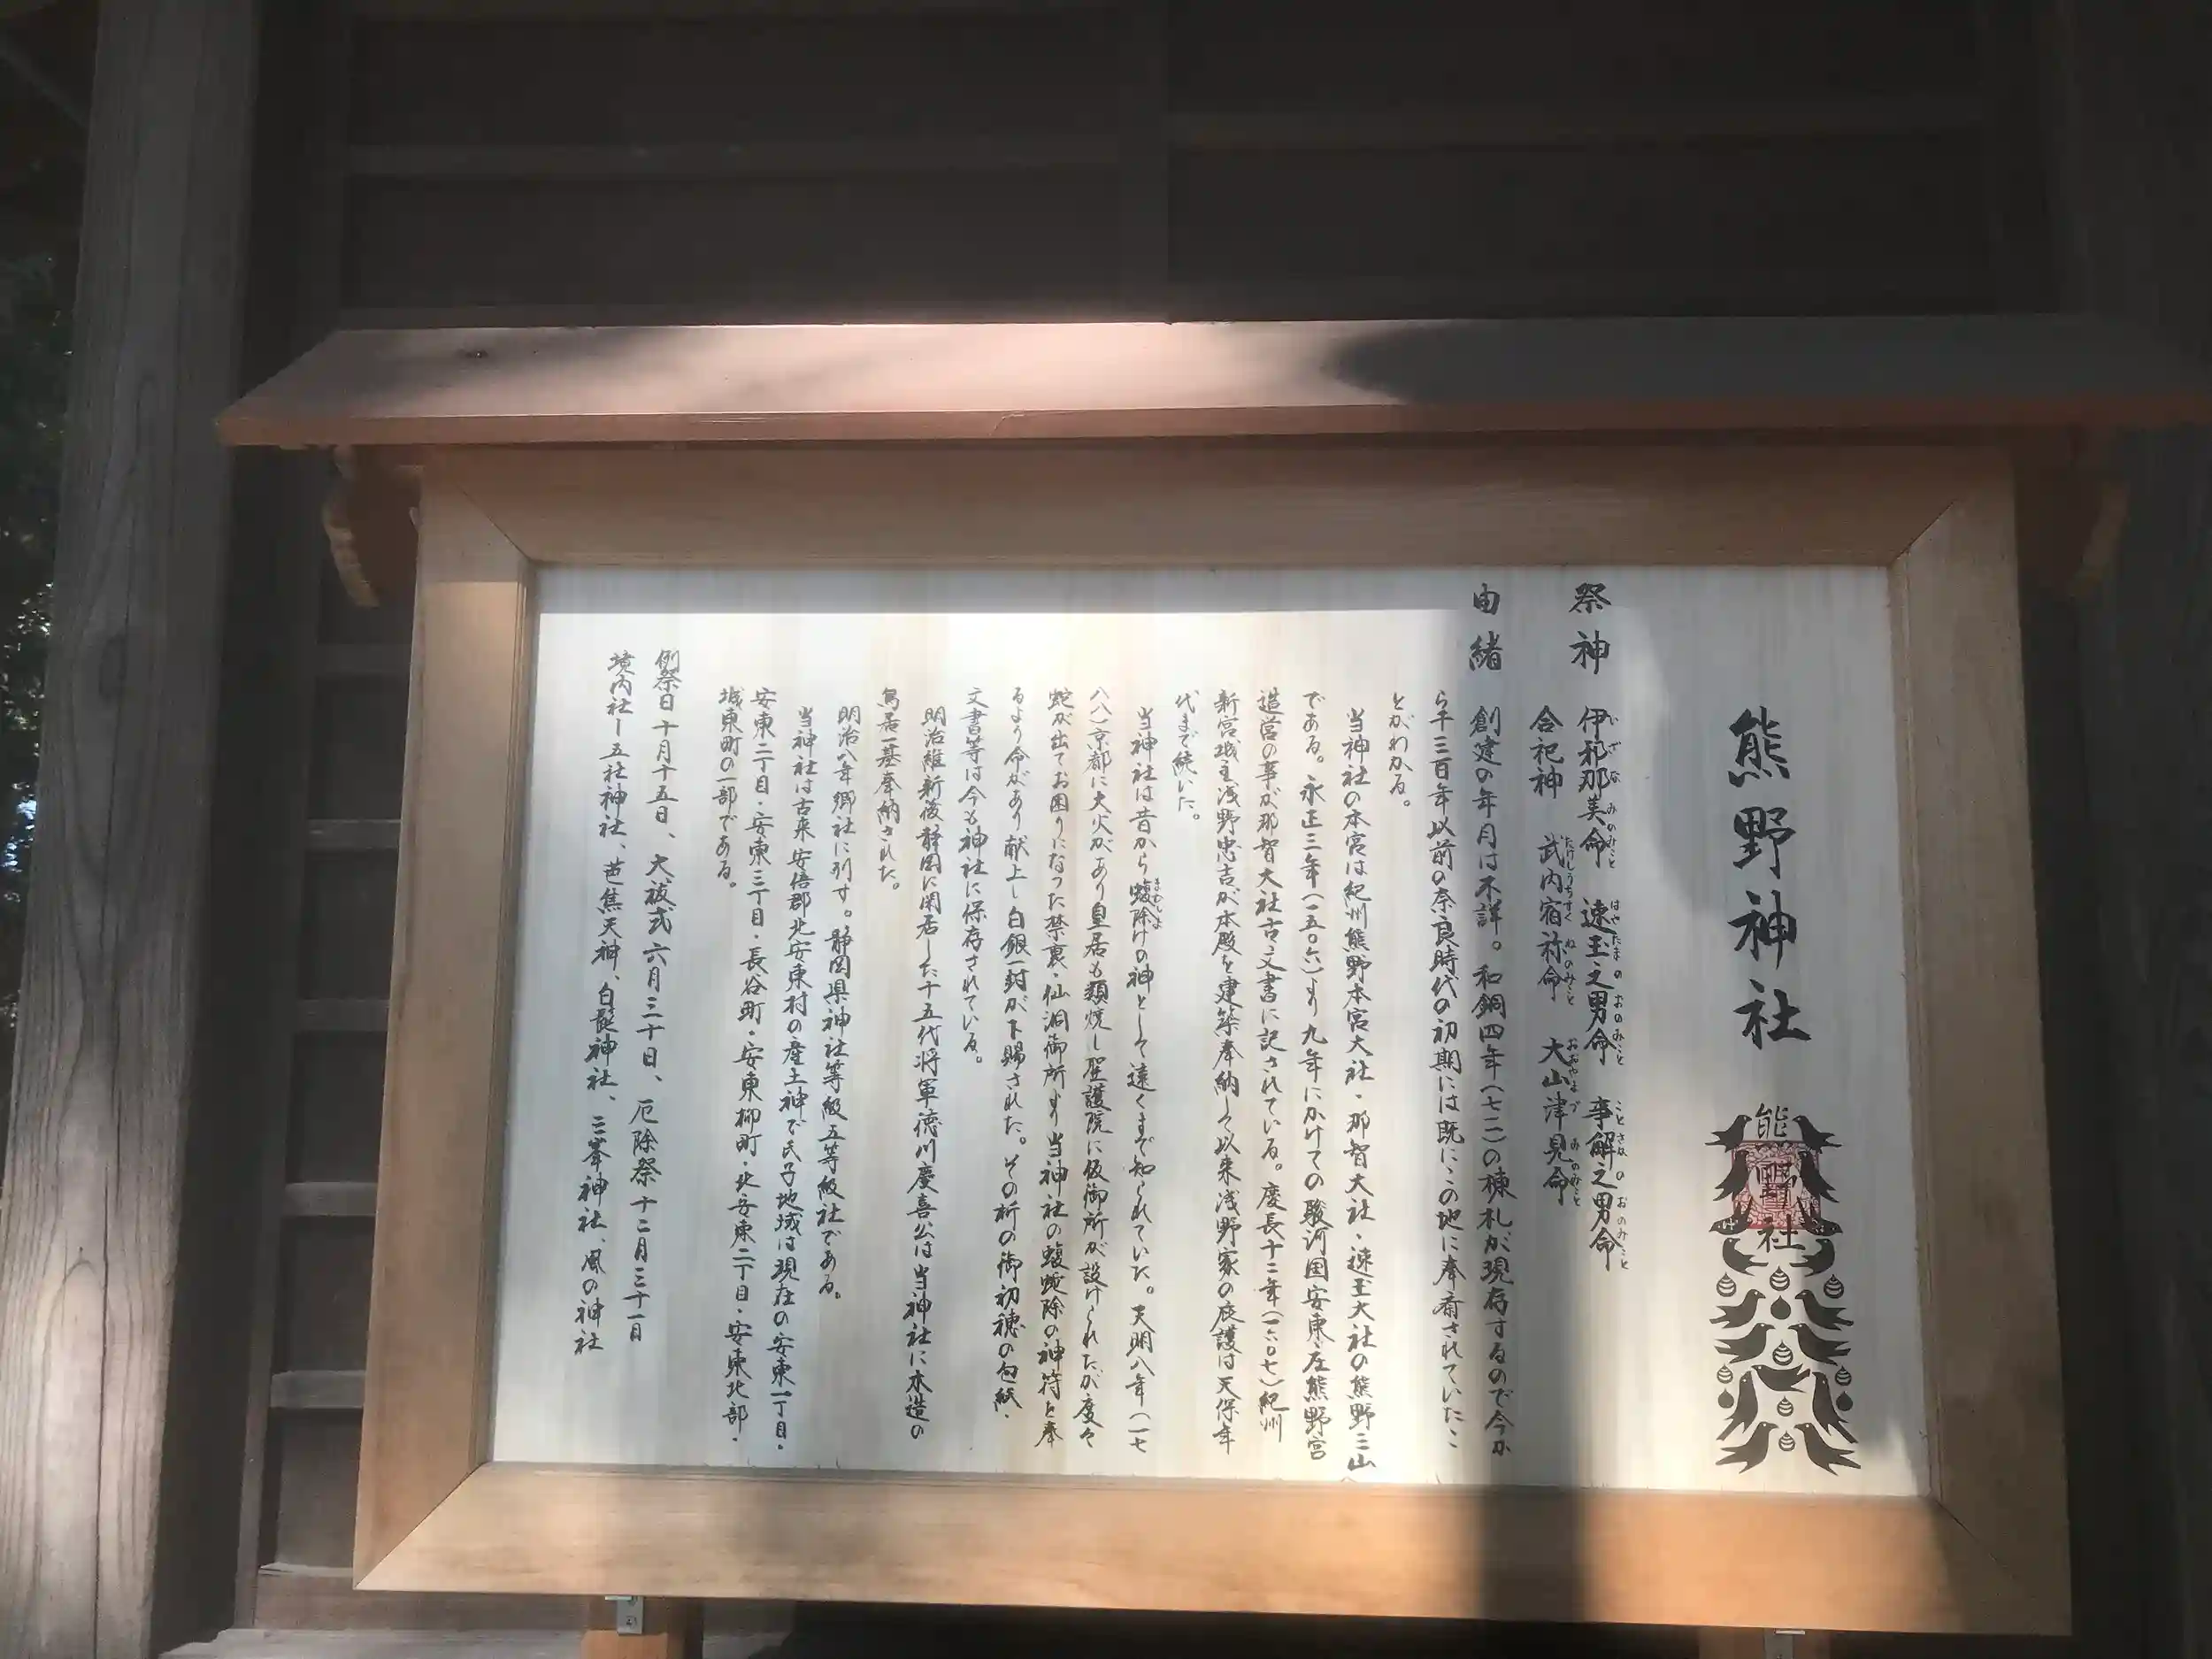 熊野神社
熊
野
社
祭神 伊邪那美命 速玉之男命 事解之男命
合祀神 武内宿祢命 大山津見命
由緒 創建の年月は不詳。和銅四年(七一一)の棟札が現存するので今か
ら千三百年以前の奈良時代の初期には既にこの地に奉斎されていたこ
とがわかる。
当神社の本宮は紀州熊野本宮大社・那智大社・速玉大社の熊野三山
である。永正三年(一五〇六)より九年にかけての駿河国安東庄熊野宮
造営の事が那智大社古文書に記されている。慶長十二年(一六〇七)紀州
新宮城主浅野忠吉が本殿を建築奉納して以来浅野家の庇護は天保年
代まで続いた。
当神社は昔から蝮除けの神として遠くまで知られていた。天明八年(一七
八八)京都に大火があり皇居も類焼し聖護院に仮御所が設けられたが度々
蛇が出てお困りになった禁裏・仙洞御所より当神社の蝮蛇除の神符を奉
るよう命があり献上し白銀一封が下賜された。その折の御初穂の包紙・
文書等は今も神社に保存されている。
明治維新後静岡に閑居した十五代将軍徳川慶喜公は当神社に木造の
鳥居一基奉納された。
明治八年郷社に列す。静岡県神社等級五等級社である。
当神社は古来安倍郡北安東村の産土神で氏子地域は現在の安東一丁目・
安東二丁目・安東三丁目・長谷町・安東柳町・北安東二丁目・安東北部・
城東町の一部である。
例祭日十月十五日、大祓式六月三十日、厄除祭十二月三十一日
境内社ー五社神社、芭蕉天神、白髭神社、三峯神社、風の神社